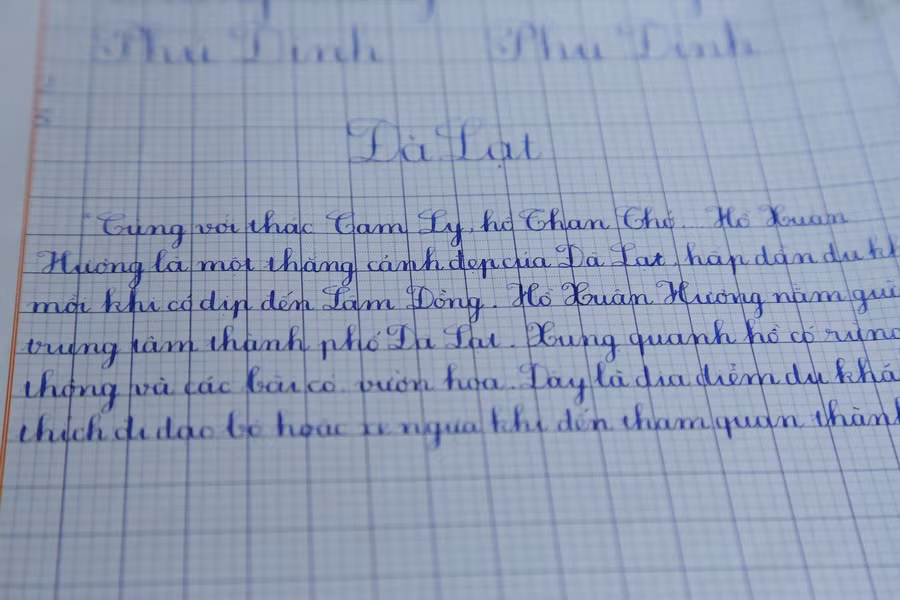 Phu Tinh Phu Tinh
Đà Lạt
Cùng với thác Cam Ly, hồ Than Thở. Hồ Xuân
Hương là một thắng cảnh đẹp của Đà Lạt, hấp dẫn du kh
mỗi khi có dịp đến Lâm Đồng. Hồ Xuân Hương nằm giữ
trung tâm thành phố Đà Lạt. Xung quanh hồ có rừng
thông và các bãi cỏ, vườn hoa. Đây là địa điểm du khá
thích đi dạo bộ hoặc xe ngựa khi đến tham quan thành